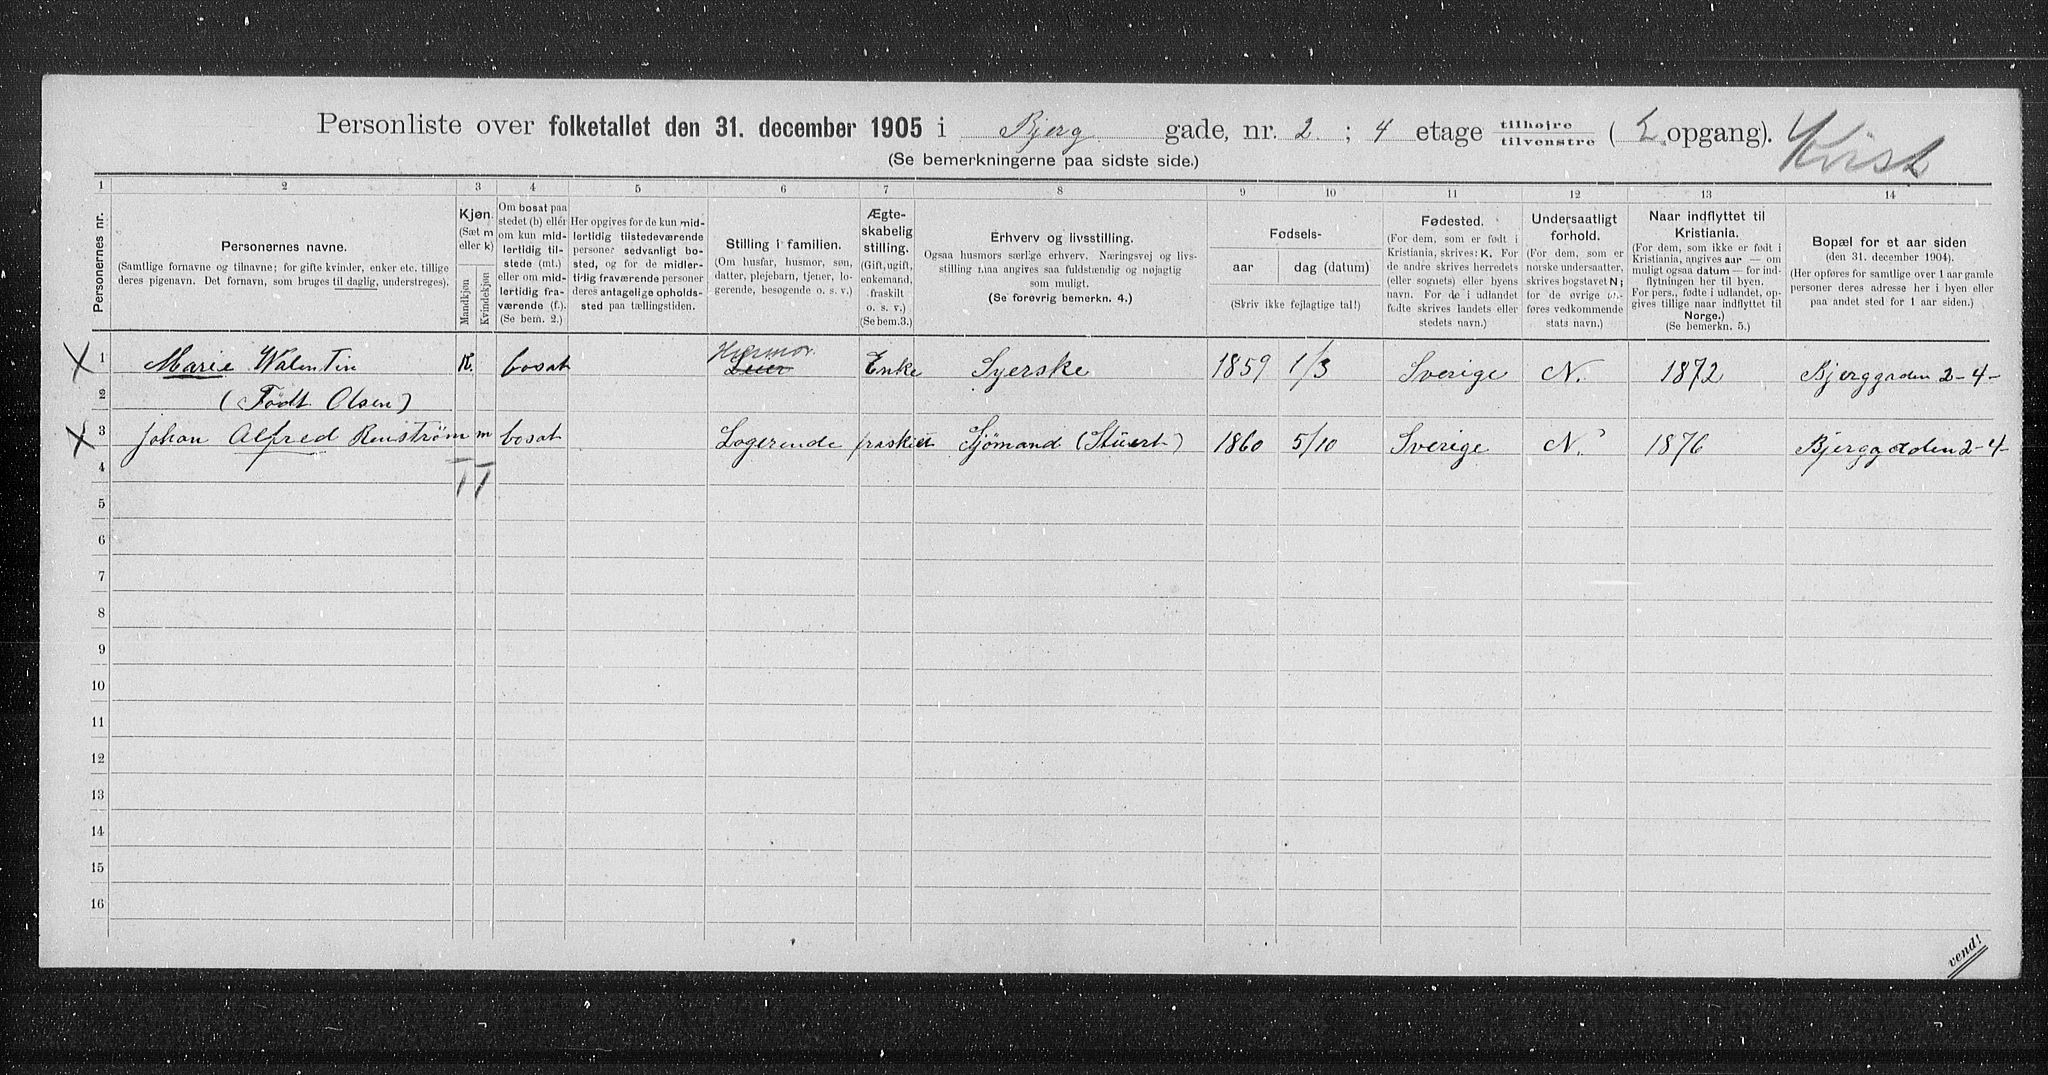 Personliste over folketallet den 31. december 1905 i Bjerg gade, nr. 2 ; 4 etage tilhøjre tilvenstre ( opgang).
(Se bemerkningerne paa sidste side.)
1 2 3 4 5 6 7 8 9 10 11 12 13 14
Personernes nr.
Personernes navne.
(Samtlige fornavne og tilnavne; for gifte kvinder, enker etc. tillige
deres pigenavn. Det fornavn, som bruges til daglig, understreges).
Kjøn.
(Sæt m
eller k)
Mandkjøn
Kvindekjøn
Om bosat paa
stedet (b) eller
om kun mid-
lertidig til-
stede (mt.)
eller om mid-
lertidig fra-
værende (f.).
(Se bem. 2.)
Her opgives for de kun mid-
lertidig tilstedeværende
personer sedvanligt bo-
sted, og for de midler-
tidig fraværende personer
deres antagelige opholds-
sted paa tællingstiden.
Stilling i familien.
(Om husfar, husmor, søn,
datter, plejebarn, tjener, lo-
gerende, besøgende o. s. v.)
Ægte-
skabelig
stilling.
(Gift, ugift,
enkemand,
fraskilt
o. s. v.)
(Se bem. 3.)
Erhverv og livsstilling.
Ogsaa husmors særlige erhverv. Næringsvej og livs-
stilling maa angives saa fuldstændig og nøjagtig
som muligt.
(Se forøvrig bemerkn. 4.)
Fødsels-
aar dag (datum)
(Skriv ikke fejlagtige tal!)
Fødested.
(For dem, som er født i
Kristiania, skrives: K. For
de andre skrives herredets
(eller sognets) eller byens
navn. For de i udlandet
fødte skrives landets eller
stedets navn.)
Undersaatligt
forhold.
(For dem, som er
norske undersaatter,
skrives bogstavet N;
for de øvrige an-
føres vedkommende
stats navn.)
Naar indflyttet til
Kristiania.
(For dem, som ikke er født i
Kristiania, angives aar — om
muligt ogsaa datum — for ind-
flytningen her til byen.
For pers., fødte i udlandet, op-
gives tillige naar indflyttet til
Norge.)
(Se bemerkn. 5.)
Bopæl for et aar siden
(den 31. december 1904).
(Her opføres for samtlige over 1 aar gamle
personer deres adresse her i byen eller
paa andet sted for 1 aar siden.)
Husmor
X 1 Marie Valentin K. bosat Leier Enke Syerske 1859 1/3 Sverige N. 1872 Bjerggaden 2-4-
2 (Født Olsen)
X 3 Johan Alfred Renström m bosat Logerende fraskilt Sjømand (Stuert) 1860 5/10 Sverige N. 1876 Bjerggaden 2-4-
4
5
6
7
8
9
10
11
12
13
14
15
16
vend!